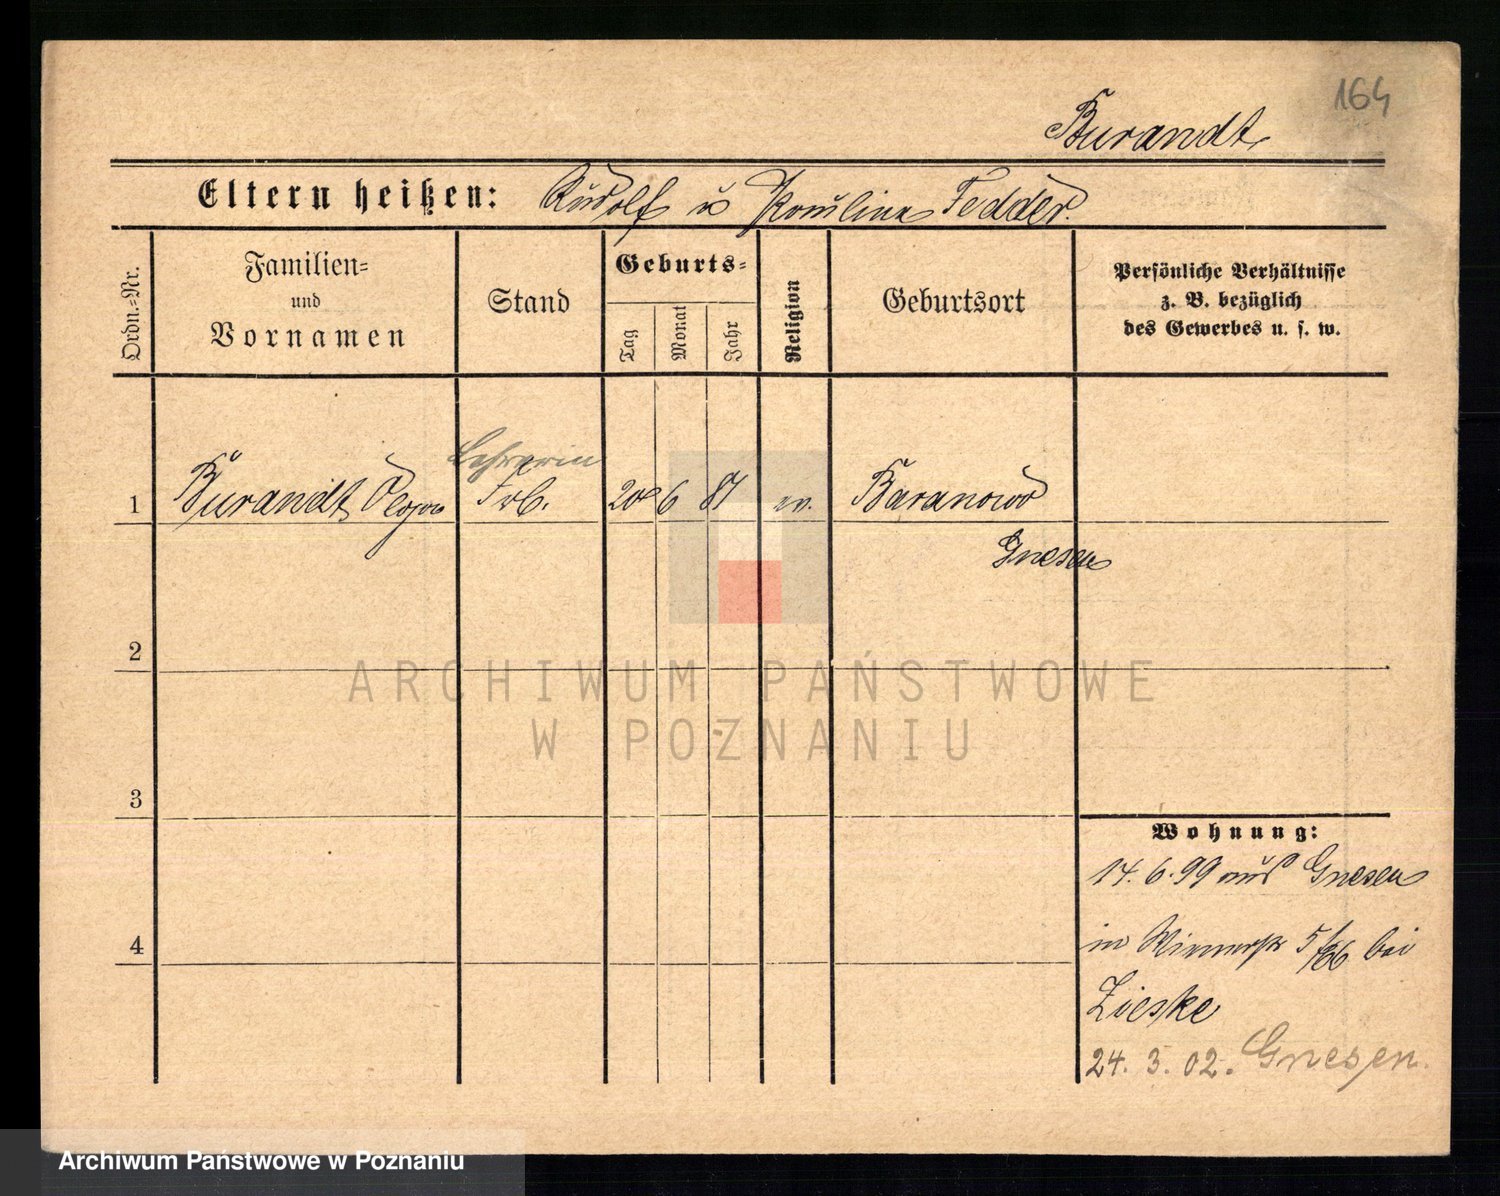 164
Burandt
Eltern heißen: Rudolf u Pauline Fedder.
Ordn.=Nr.
Familien=
und
Vornamen
Stand
Geburts=
Tag
Monat
Jahr
Religion
Geburtsort
Persönliche Verhältnisse
z. B. bezüglich
des Gewerbes u. s. w.
Lehrerin
1 Burandt 20 6 ev. Baranowo
Gnesen
2
ARCHIWUM PAŃSTWOWE
W POZNANIU
3
Wohnung:
14.6.99 aus Gnesen
4
in 5/66 bei
Zieske
24. 3. 02. Gnesen.
Archiwum Państwowe w Poznaniu